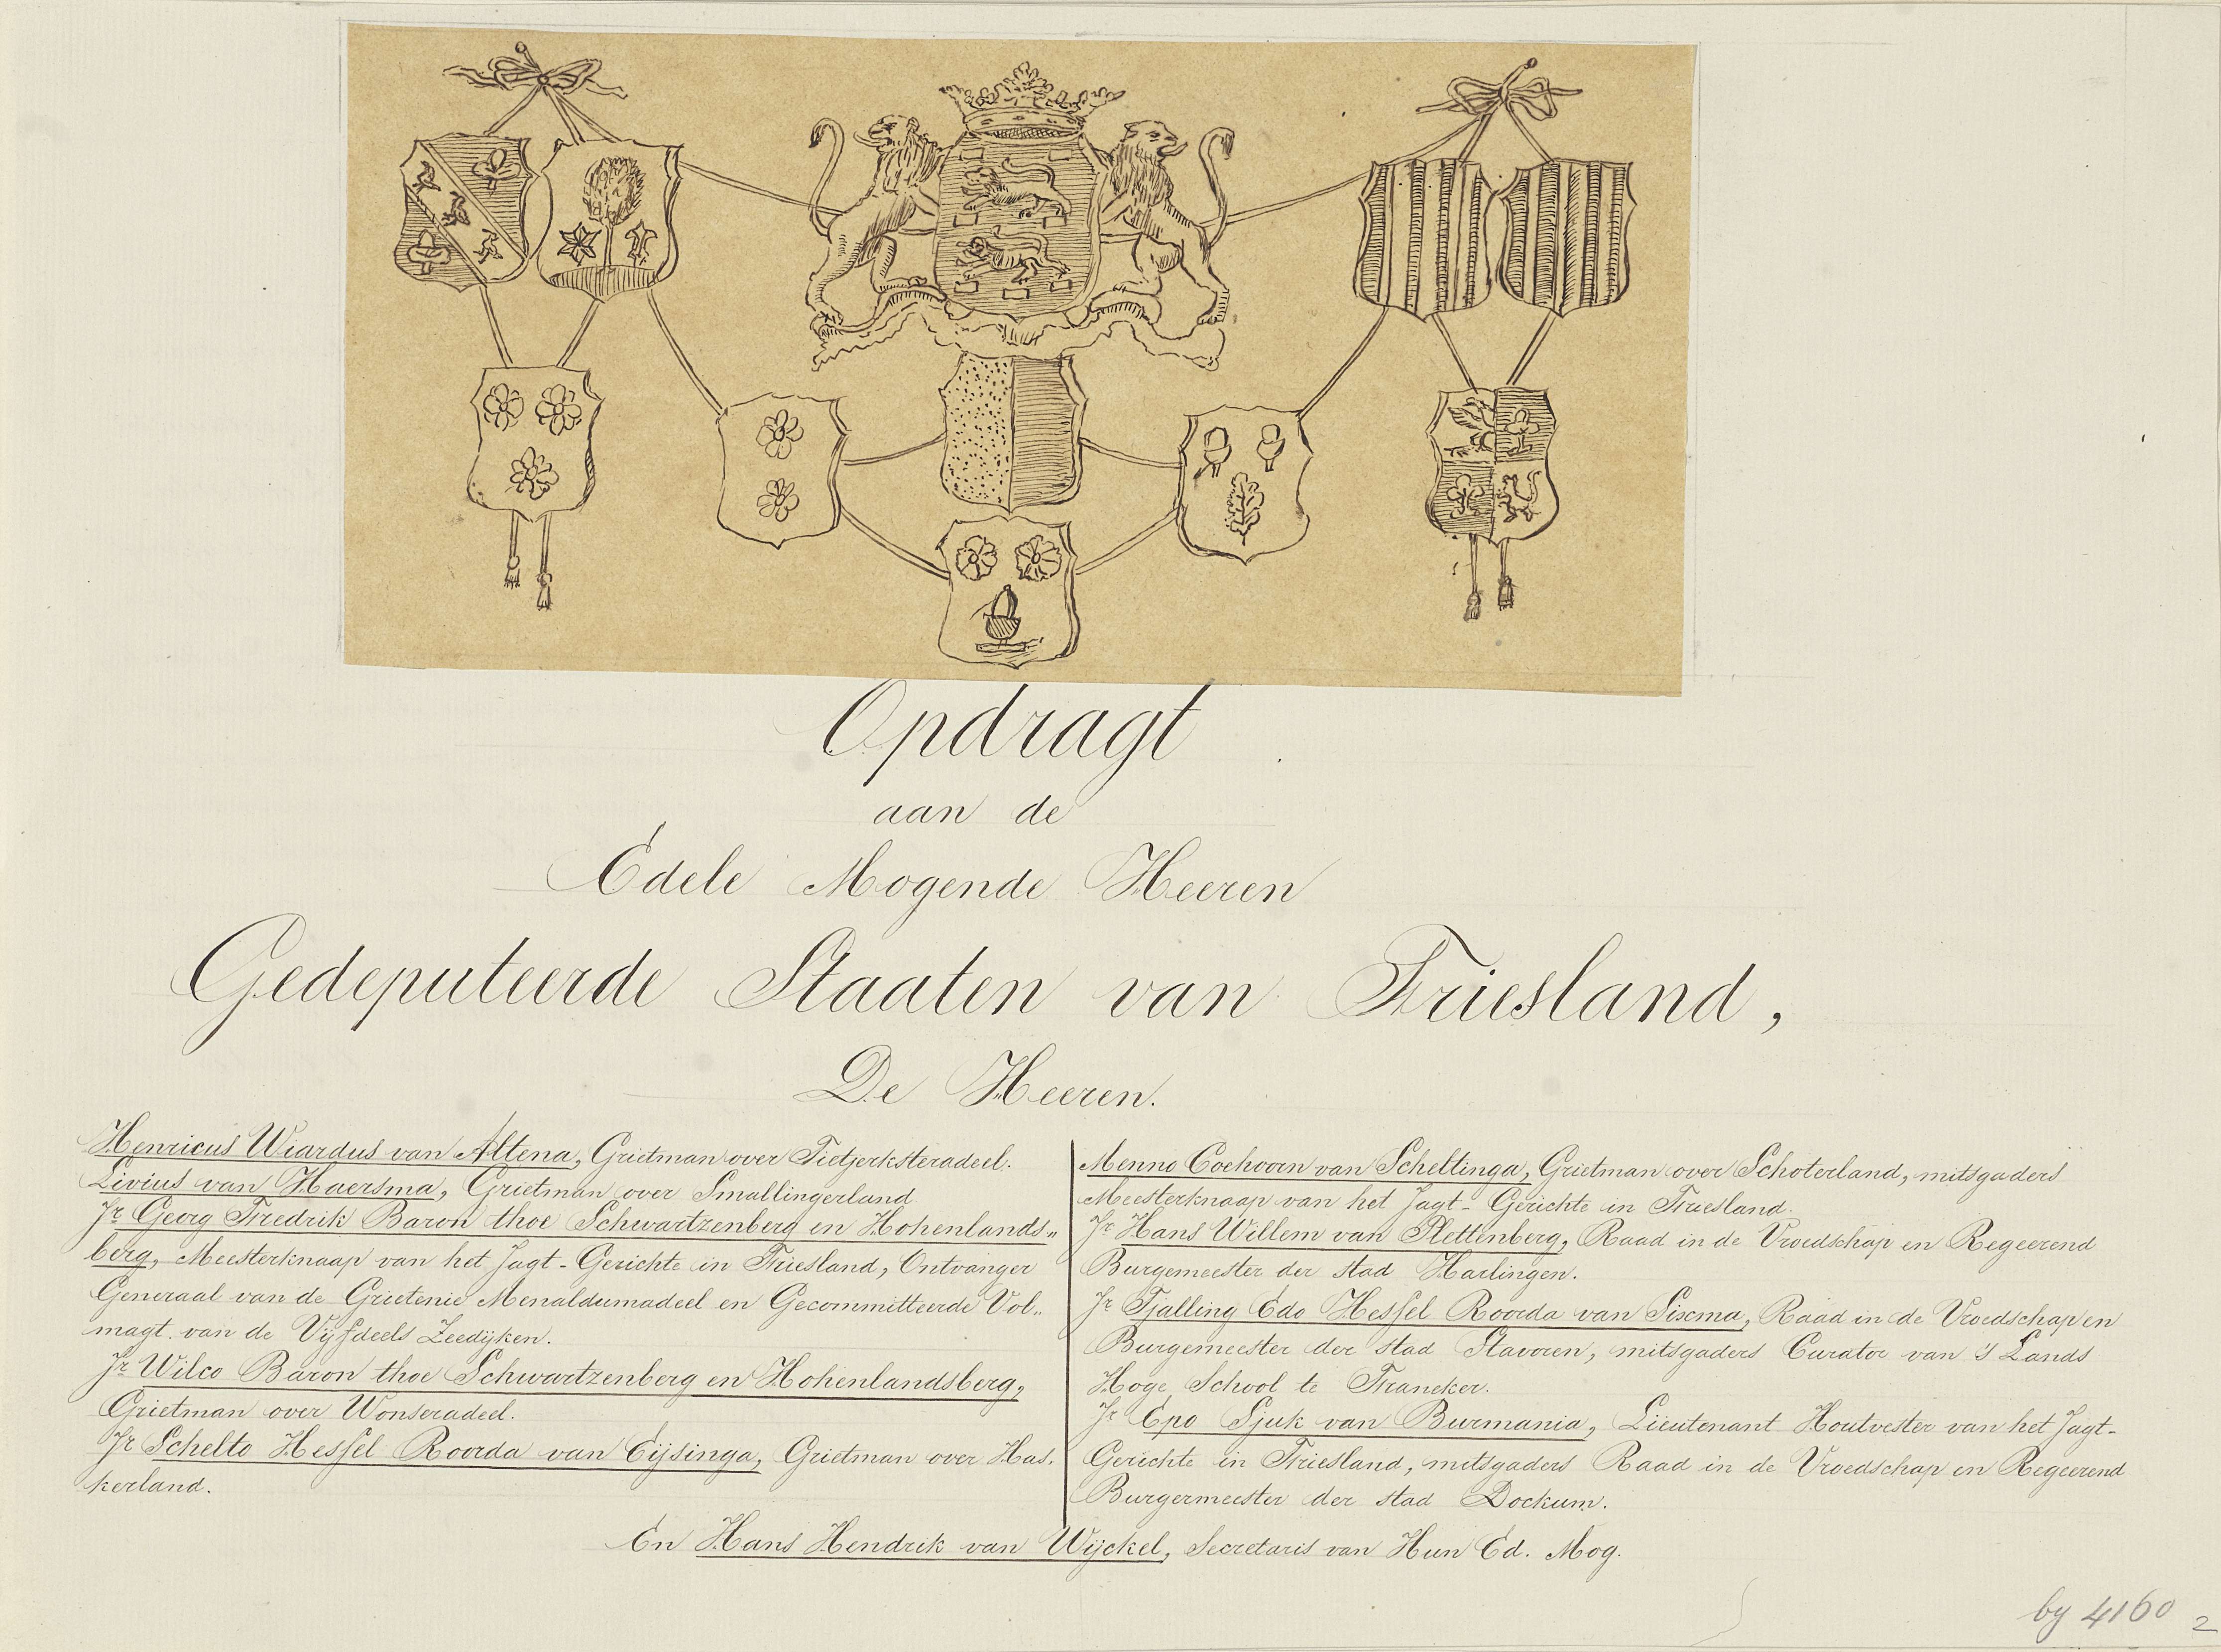 Opdragt
aan de
Edele Mogende Heeren
Gedeputeerde Staaten van Friesland,
De Heeren.
Henricus Wiardus van Altena, Grietman over Tietjerksteradeel.
Livius van Haersma, Grietman over Smallingerland
Jr. Georg Fredrik Baron thoe Schwartzenberg en Hohenlands„
berg, Meesterknaap van het Jagt-Gerichte in Friesland, Ontvanger
Generaal van de Grietenie Menaldumadeel en Gecommitteerde Vol„
magt van de Vijfdeels Zeedijken.
Jr. Wilco Baron thoe Schwartzenberg en Hohenlandsberg,
Grietman over Wonseradeel.
Jr. Schelto Hessel Roorda van Eijsinga, Grietman over Has.
kerland.
Menno Coehoorn van Scheltinga, Grietman over Schoterland, mitsgaders
Meesterknaap van het Jagt-Gerichte in Friesland.
Jr. Hans Willem van Plettenberg, Raad in de Vroedschap en Regeerend
Burgemeester der stad Harlingen.
Jr. Tjalling Edo Hessel Roorda van Sixma, Raad in de Vroedschap en
Burgemeester der stad Stavoren, mitsgaders Curator van 's Lands
Hoge School te Franeker.
Jr. Epo Sjuk van Burmania, Lieutenant Houtvester van het Jagt-
Gerichte in Friesland, mitsgaders Raad in de Vroedschap en Regeerend
Burgermeester der stad Dockum.
En Hans Hendrik van Wijckel, Secretaris van Hun Ed. Mog.
by 4160
2